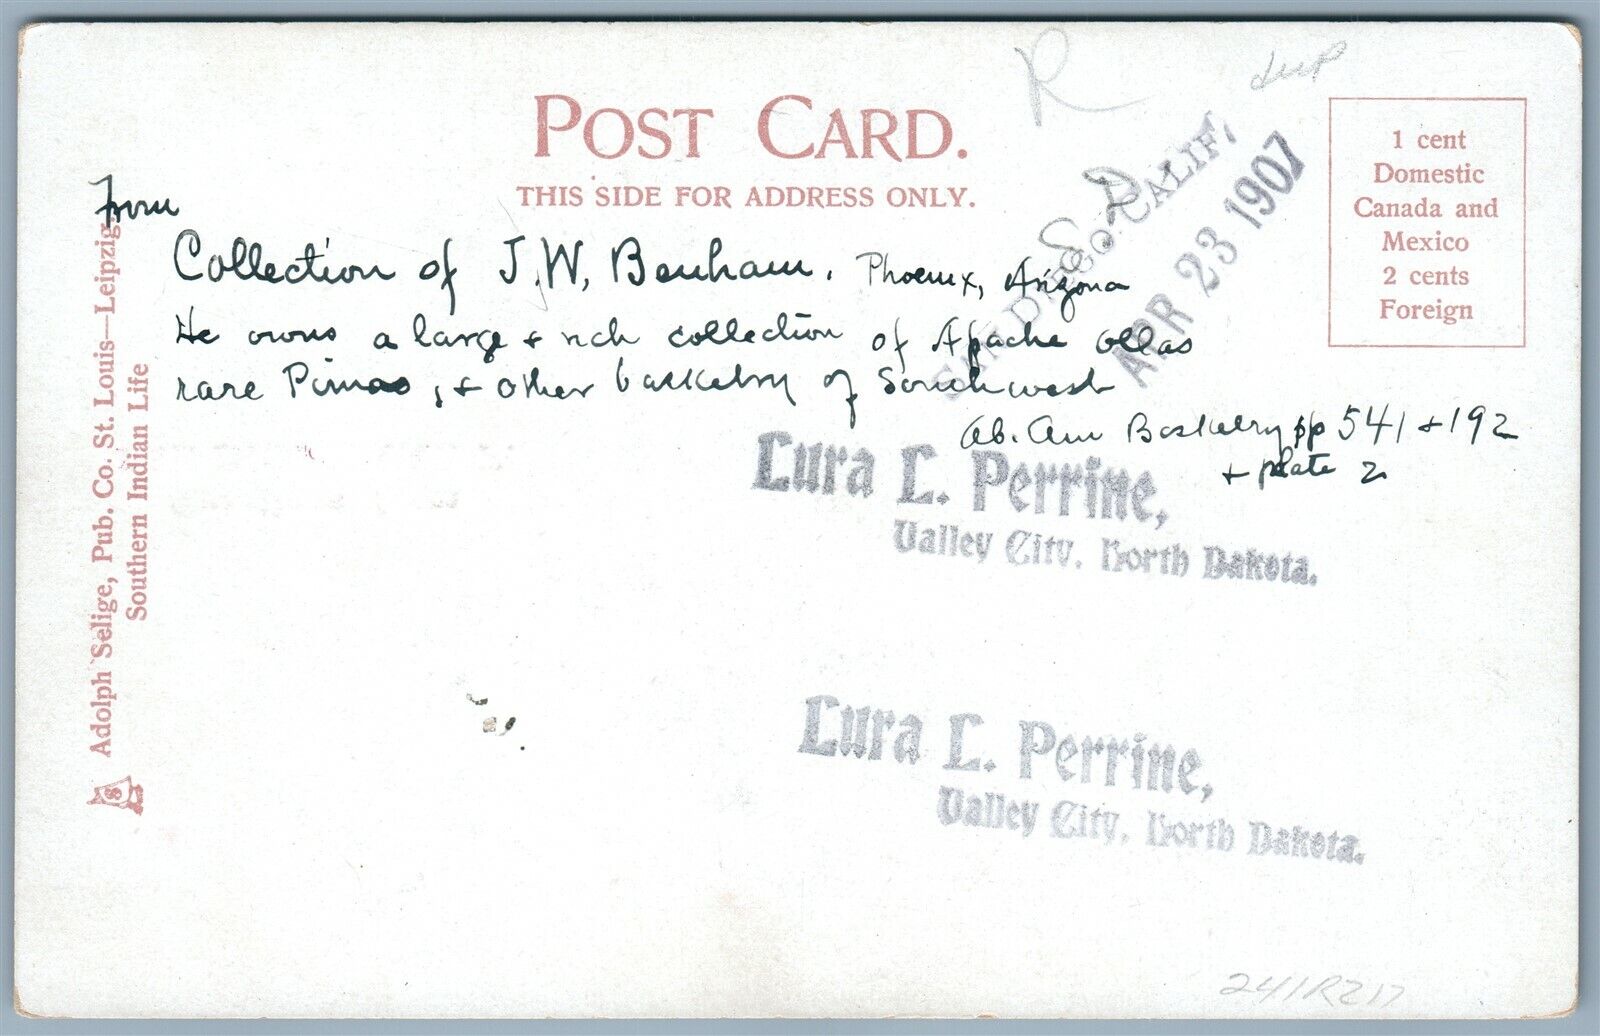 R
dup
POST CARD.
THIS SIDE FOR ADDRESS ONLY.
1 cent
Domestic
Canada and
Mexico
2 cents
Foreign
S.D.
SAN DIEGO. CALIF,
APR 23 1907
From
Collection of J.W. Benham. Phoenix, Arizona
He owns a large & rich collection of Apache ollas
rare Pimas, & other basketry of Southwest
Ab. Am Basketry pp 541 & 192
& plate 2
Lura L. Perrine,
Valley City, North Dakota.
Lura L. Perrine,
Valley City, North Dakota.
Adolph Selige, Pub. Co. St. Louis—Leipzig
Southern Indian Life
S
241RZ17